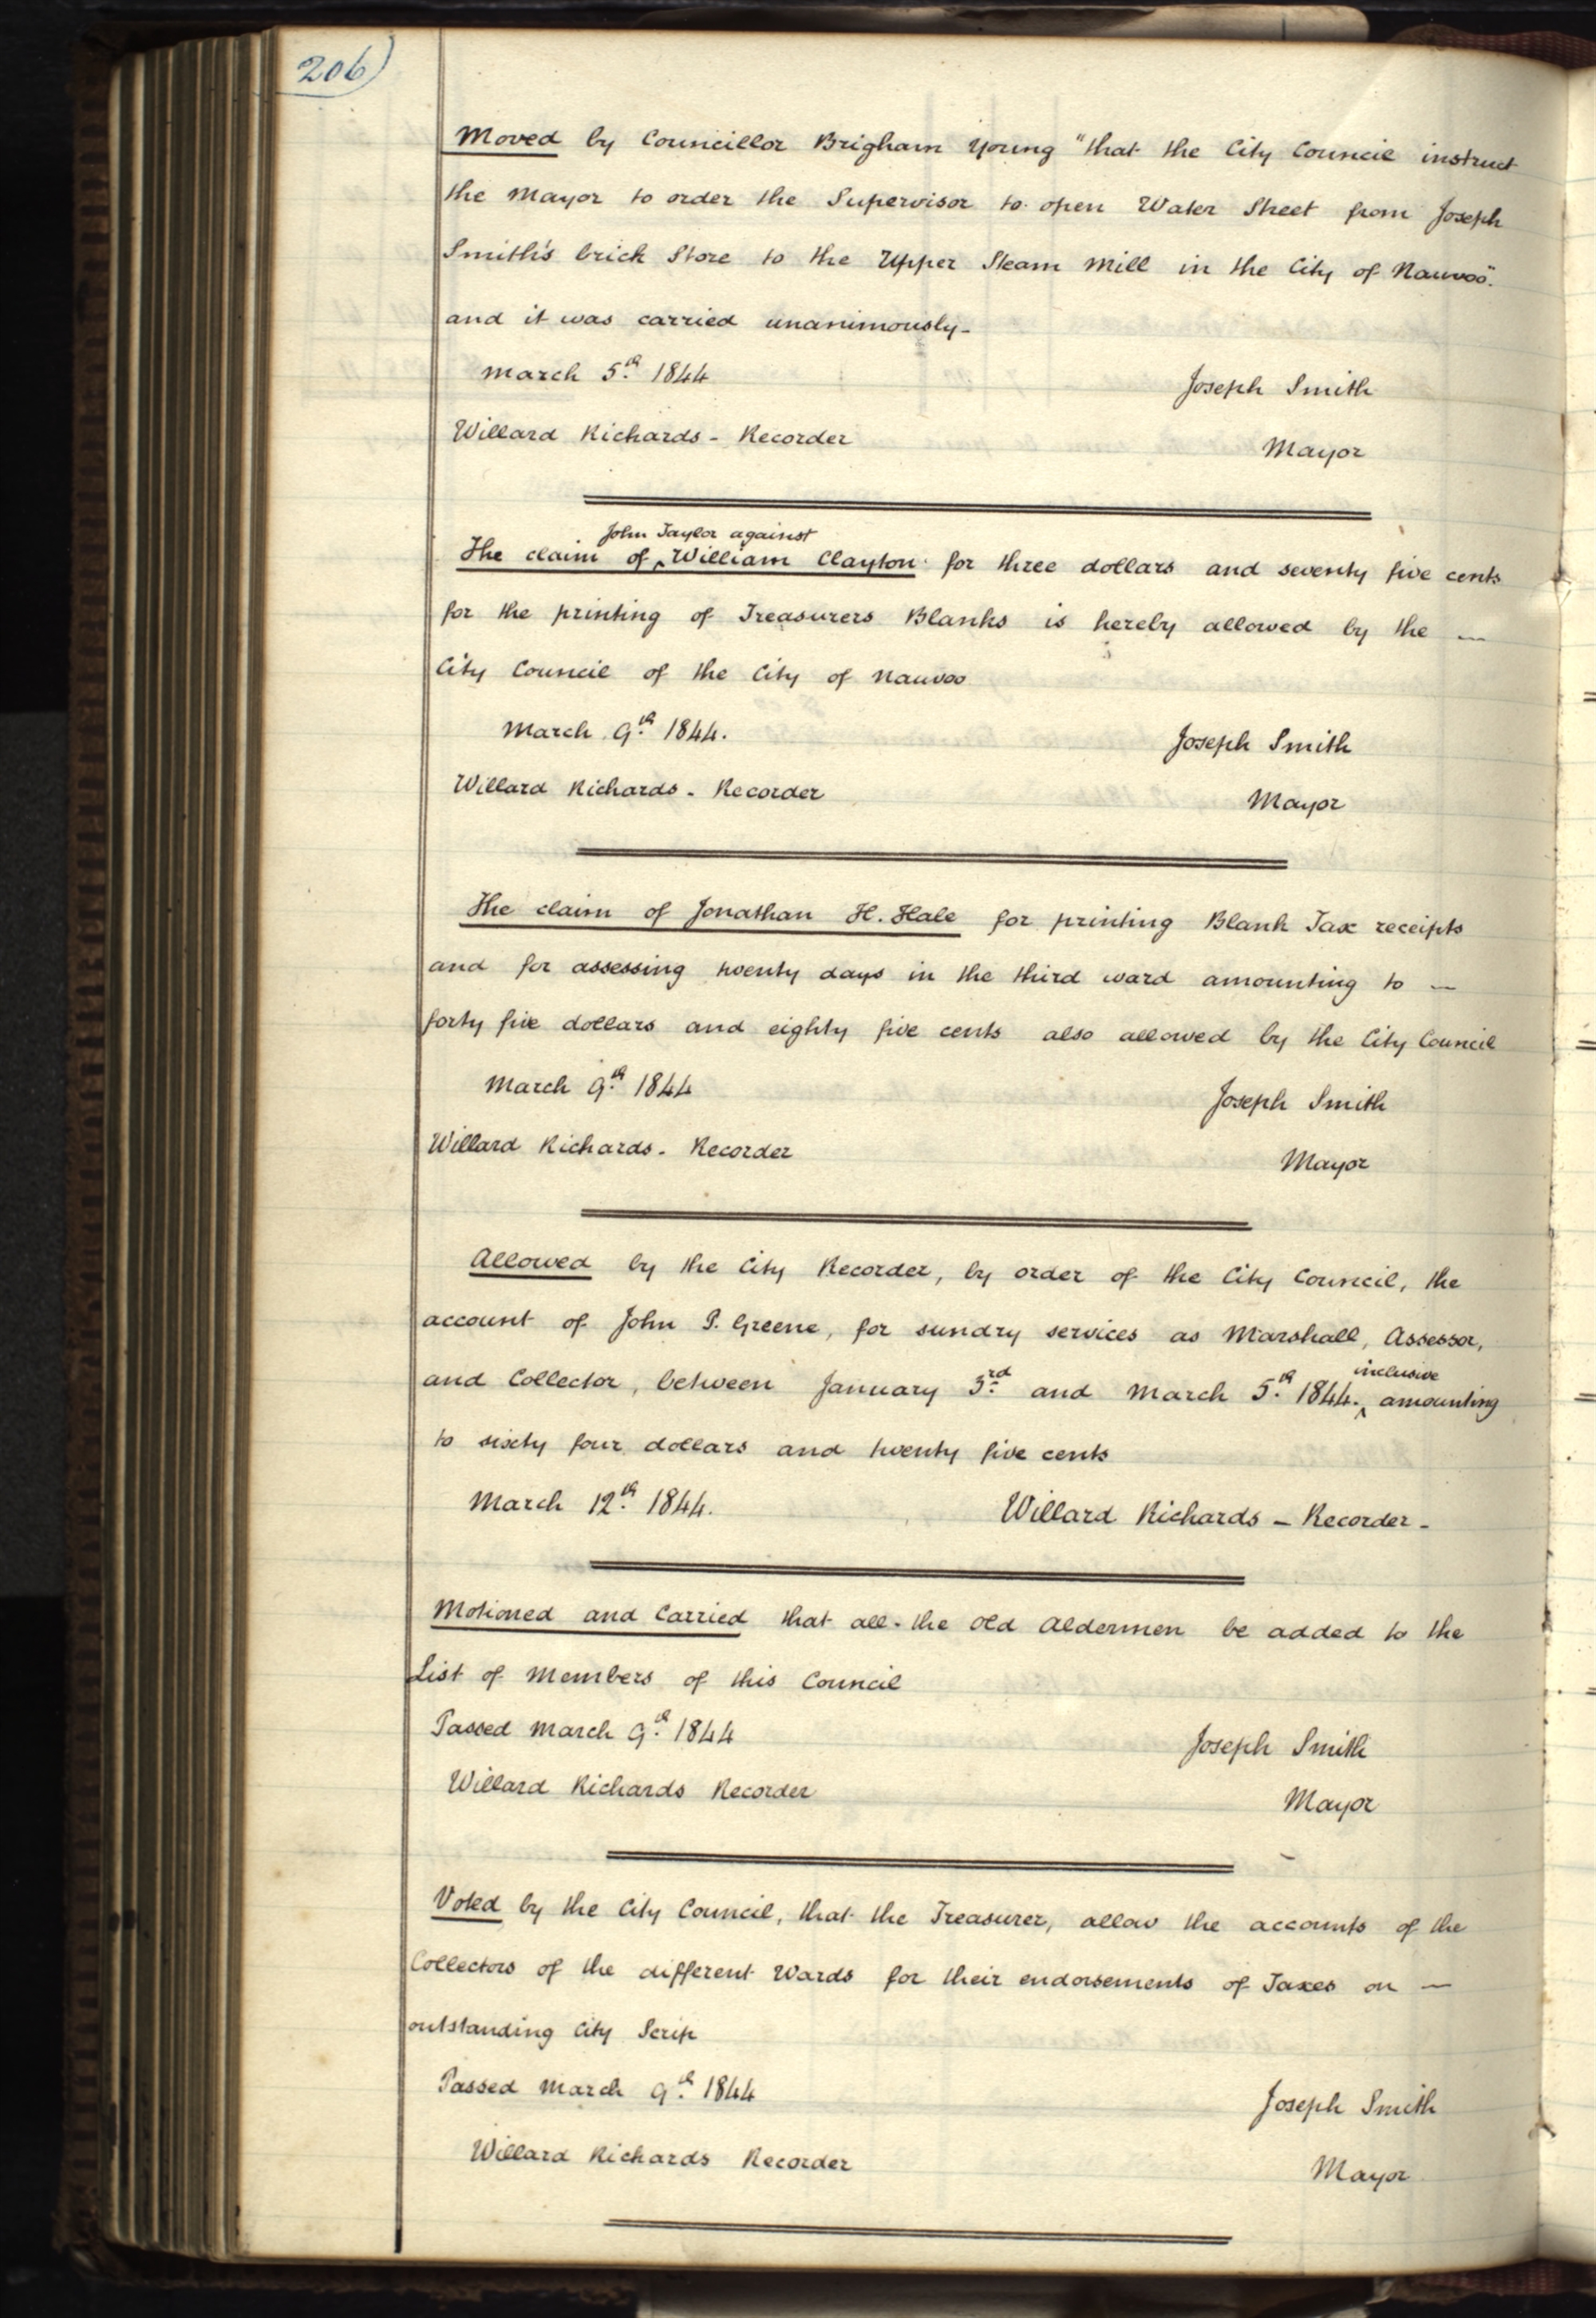 206)
Moved by Councillor Brigham Young "that the City Council instruct
the Mayor to order the Supervisor to open Water Street from Joseph
Smith's brick Store to the Upper Steam Mill in the City of Nauvoo".
and it was carried unanimously-
March 5th 1844
Joseph Smith
Willard Richards - Recorder
Mayor
John Taylor against
The claim of ^ William Clayton for three dollars and seventy five cents
for the printing of Treasurers Blanks is hereby allowed by the —
City Council of the City of Nauvoo
March 9th 1844.
Joseph Smith
Willard Richards - Recorder
Mayor
The claim of Jonathan H. Hale for printing Blank Tax receipts
and for assessing twenty days in the third ward amounting to —
forty five dollars and eighty five cents also allowed by the City Council
March 9th 1844
Joseph Smith
Willard Richards - Recorder
Mayor
Allowed by the City Recorder, by order of the City Council, the
account of John P. Greene, for sundry services as Marshall, Assessor,
inclusive
and Collector, between January 3rd and March 5th 1844. ^ amounting
to sixty four dollars and twenty five cents
March 12th 1844.
Willard Richards - Recorder -
Motioned and Carried that all the old Aldermen be added to the
List of Members of this Council
Passed March 9th 1844
Joseph Smith
Willard Richards Recorder
Mayor
Voted by the City Council, that the Treasurer, allow the accounts of the
Collectors of the different Wards for their endorsements of Taxes on —
outstanding City Scrip
Passed March 9th 1844
Joseph Smith
Willard Richards Recorder
Mayor